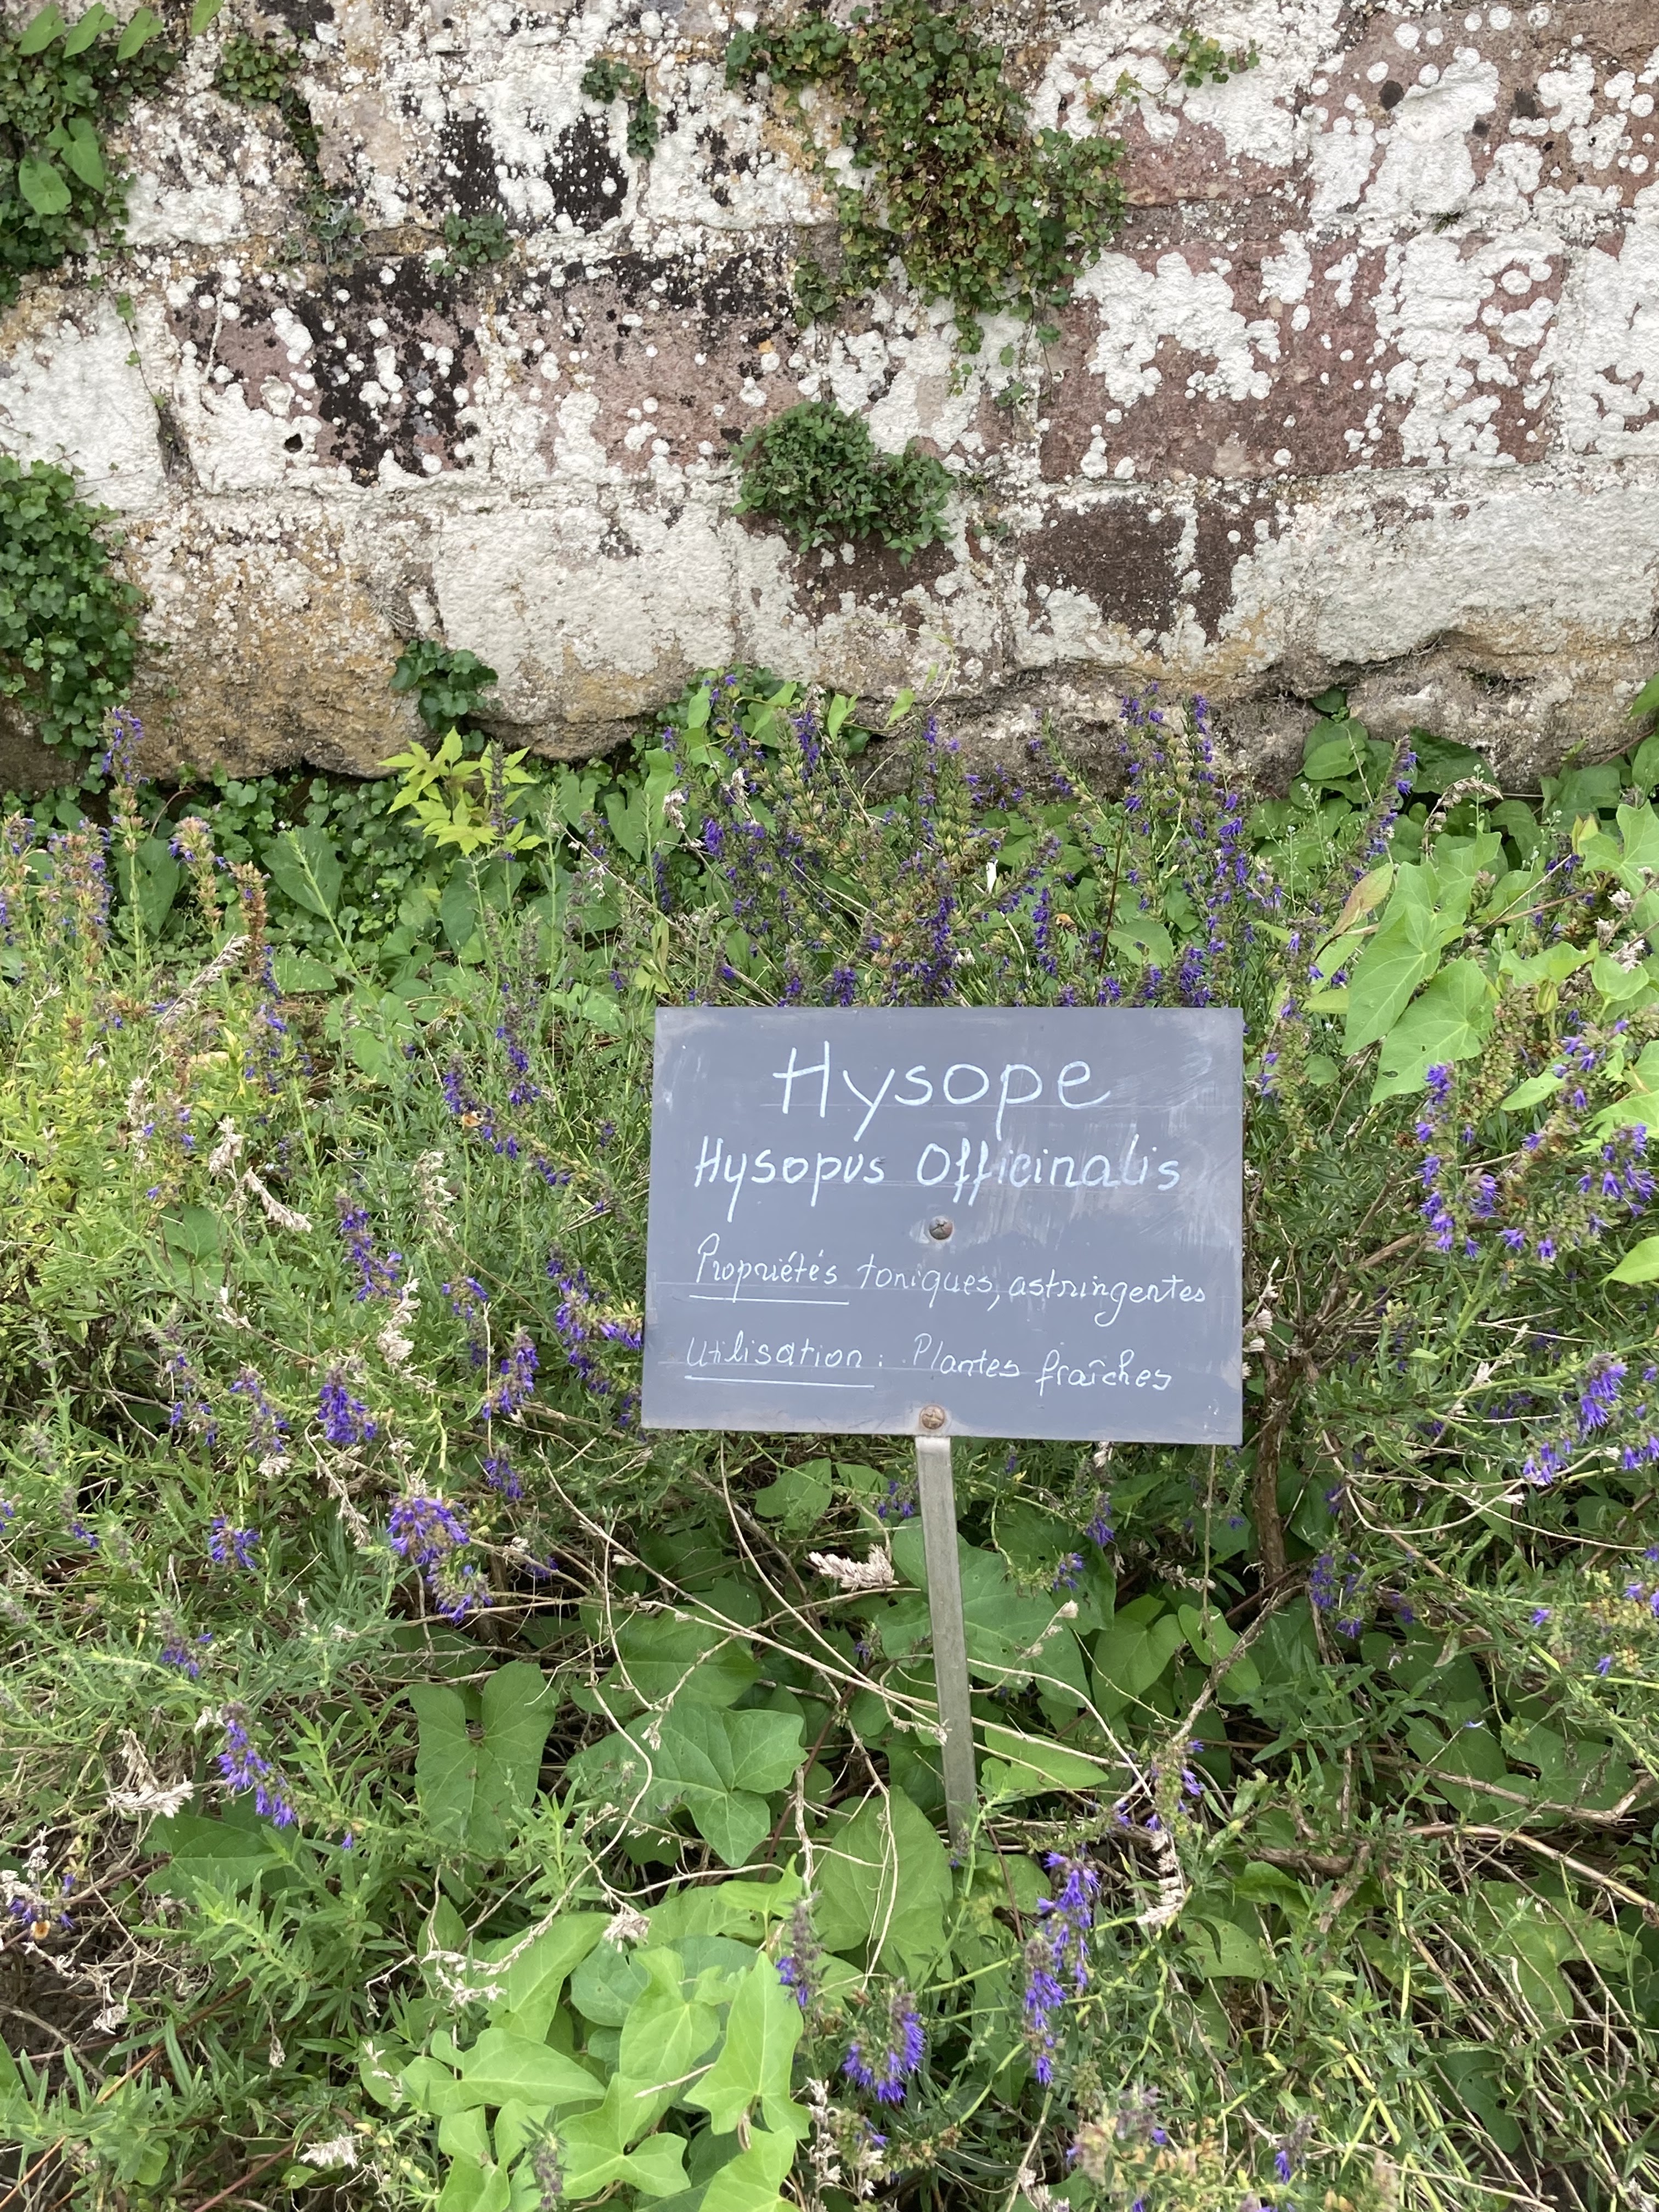 Hysope
Hysopus Officinalis
Propriétés toniques, astringentes
Utilisation : Plantes fraîches